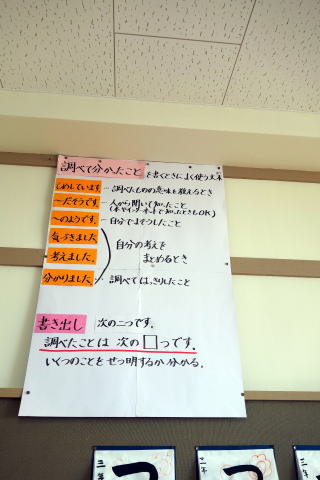 調べて分かったことを書くときによく使う文末
しめしています。…調べたものの意味を教えるとき
〜だそうです。…人から聞いて知ったこと
(本やインターネットで知ったときもOK)
〜のようです。…自分でよそうしたこと
気づきました。
考えました。
自分の考えを
まとめるとき
分かりました。…調べてはっきりしたこと
書き出し 次の二つです。
調べたことは 次の□つです。
いくつのことをせつ明するか分かる。
三年
つ
二年
つ
三年